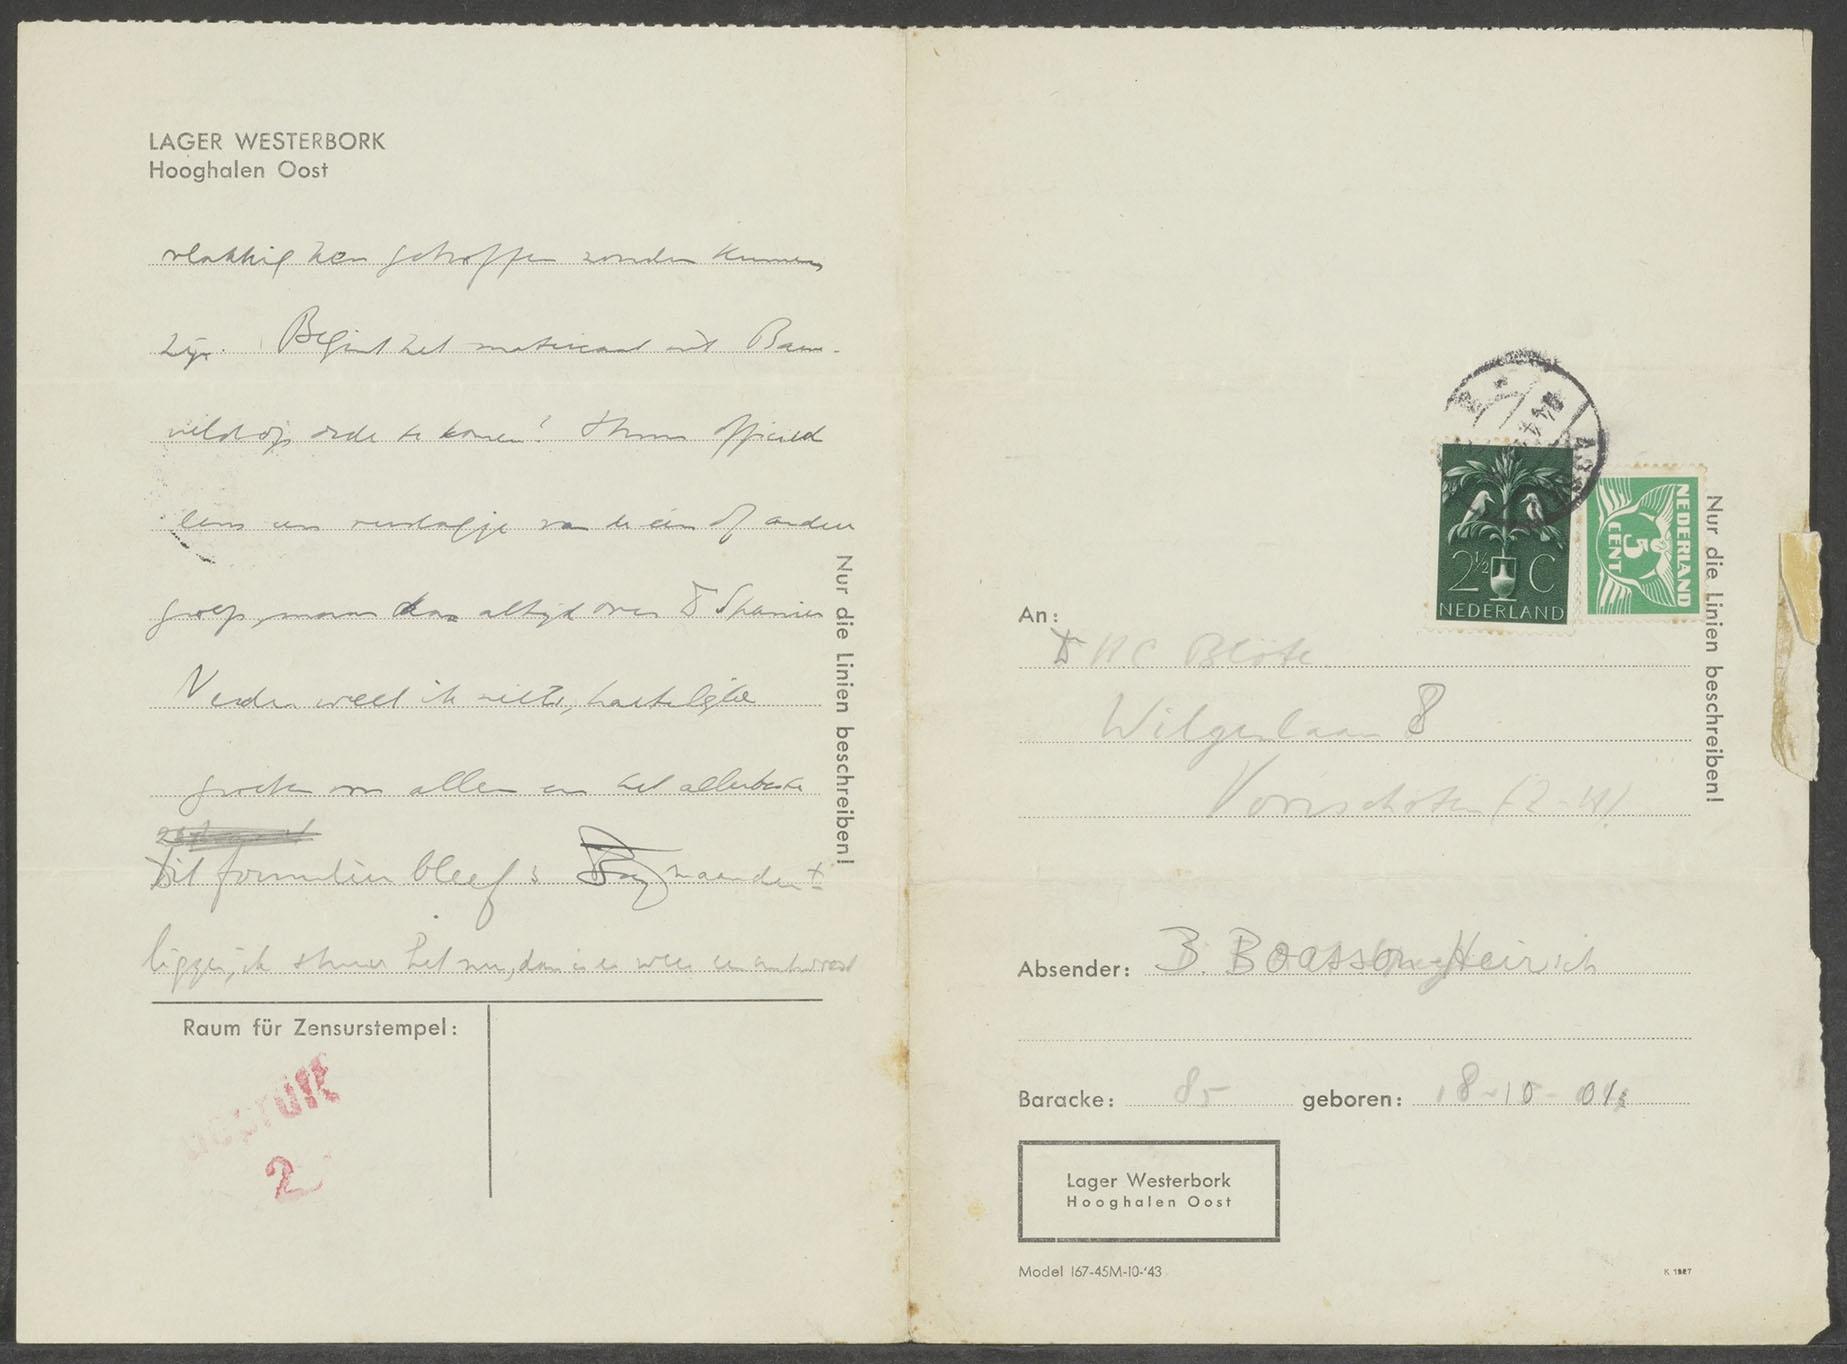 LAGER WESTERBORK
Hooghalen Oost
vlakkig hen getroffen zouden kunnen
zijn. Begint het materiaal uit
op orde te komen? Stuur officieel
eens een verslagje van de een of andere
groep, maar dan altijd over Dr Spanier
Verder weet ik niets, hartelijke
groeten van allen en het allerbeste
Dit formulier bleef 3 maanden ±
liggen, ik stuur het nu, dan is er weer een antwoord
Nur die Linien beschreiben!
Raum für Zensurstempel:
Geprüft
2
NEDERLAND
5
CENT
2½ C
NEDERLAND
Nur die Linien beschreiben!
An:
Dr H C Blöte
Wilgenlaan 8
Voorschoten (Z-H)
Absender: B. Boasson Heinrich
Baracke: 85 geboren: 18-10-04
Lager Westerbork
Hooghalen Oost
Model 167-45M-10-'43
K 1987